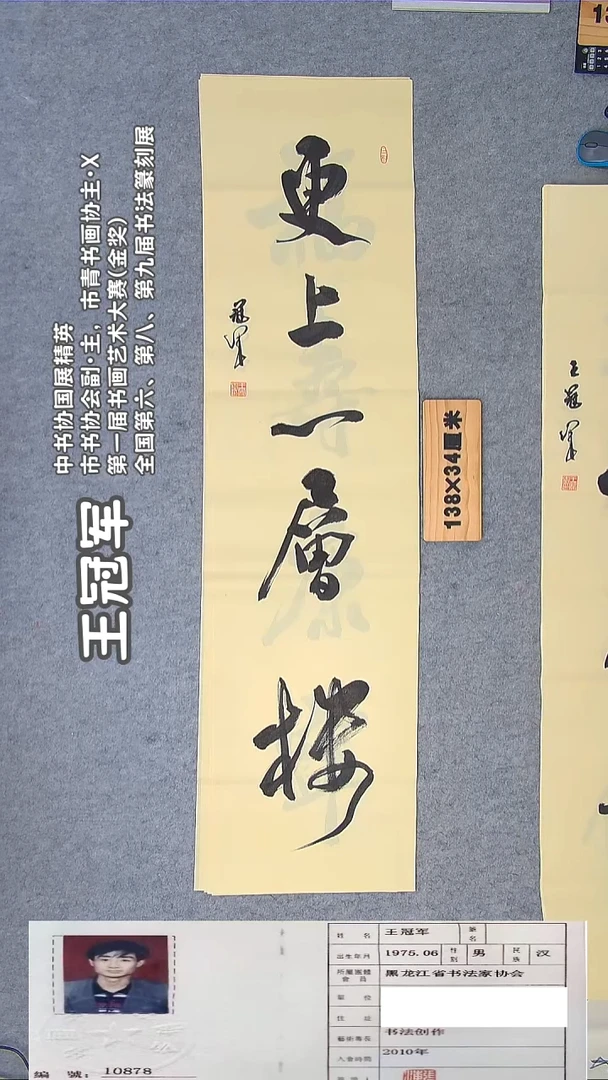 更上一層楼
冠軍
138×34厘米
王冠軍
13
王冠军
中书协国展精英
市书协会副·主，市青书画协主·X
第一届书画艺术大赛(金奖)
全国第六、第八、第九届书法篆刻展
姓 名 王冠军 笔名
出生年月 1975.06 性别 男 民族 汉
所属团体会员 黑龙江省书法家协会
单 位
住 址
艺术专长 书法创作
入会时间 2010年
编 号: 10878